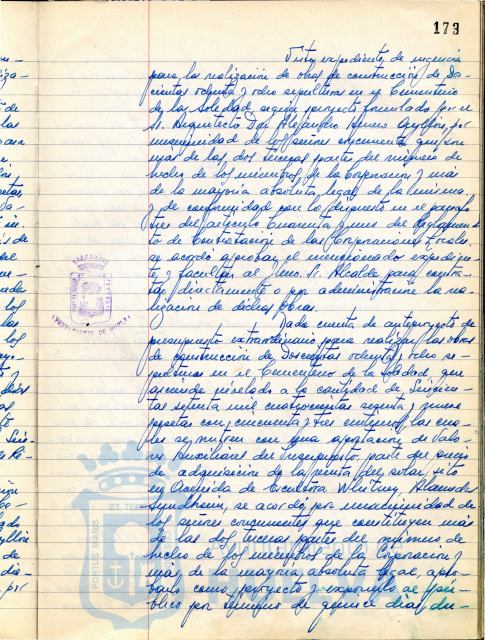 173
Visto expediente de urgencia
para la realización de obras de construcción de Dos-
cientas ochenta y ocho sepulturas en el Cementerio
de la Soledad, según proyecto formulado por el
Sr. Arquitecto Don Alejandro Herrero Ayllón, por
unanimidad de los señores concurrentes que son
más de las dos terceras partes del número de
hecho de los miembros de la Corporación y más
de la mayoría absoluta legal de la misma
y de conformidad con lo dispuesto en el párrafo
tres del artículo cuarenta y uno del Reglamen-
to de Contratación de las Corporaciones Locales
se acordó aprobar el mencionado expedien-
te y facultar al Ilmo. Sr. Alcalde para contra-
tar directamente o por administración la rea-
lización de dichas obras.
Dada cuenta de anteproyecto de
presupuesto extraordinario para realizar las obras
de construcción de Doscientas ochenta y ocho se-
pulturas en el Cementerio de la Soledad, que
asciende nivelado a la cantidad de Seiscien-
tas setenta mil cuatrocientas sesenta y nueve
pesetas con cincuenta y tres céntimos, las cua-
les se nutren con una aportación de Valo-
res Auxiliares del Presupuesto, parte del precio
de adquisición de la venta del solar sito
en Avenida de Escultora Whitney, Alameda
Sundheim, se acordó por unanimidad de
los señores concurrentes que constituyen más
de las dos terceras partes del número de
hecho de los miembros de la Corporación y
más de la mayoría absoluta legal, apro-
barlo como proyecto y exponerlo al pú-
blico por término de quince días du-